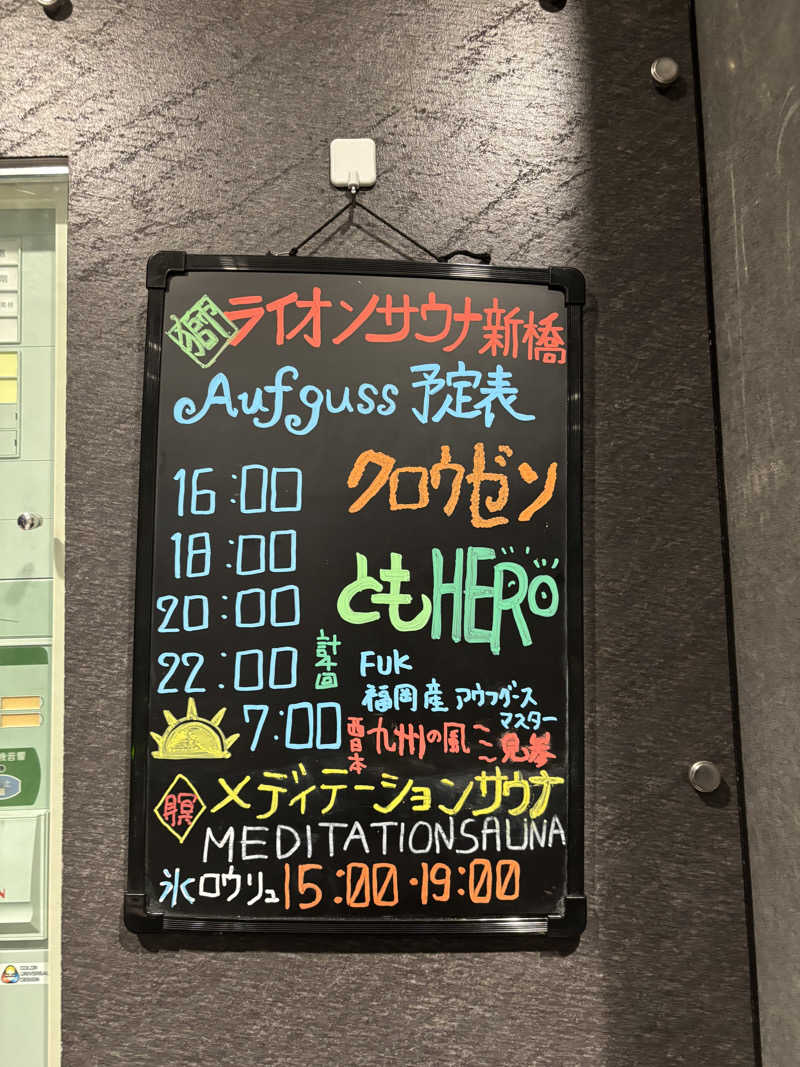 獅 ライオンサウナ新橋
Aufguss 予定表
16:00 クロウゼン
18:00
20:00 ともHERO
22:00 計4回 FUK
福岡産 アウフグース
マスター
7:00 西日本 九州の風 見参
瞑 メディテーションサウナ
MEDITATIONSAUNA
氷ロウリュ 15:00・19:00
COLOR
UNIVERSAL
DESIGN